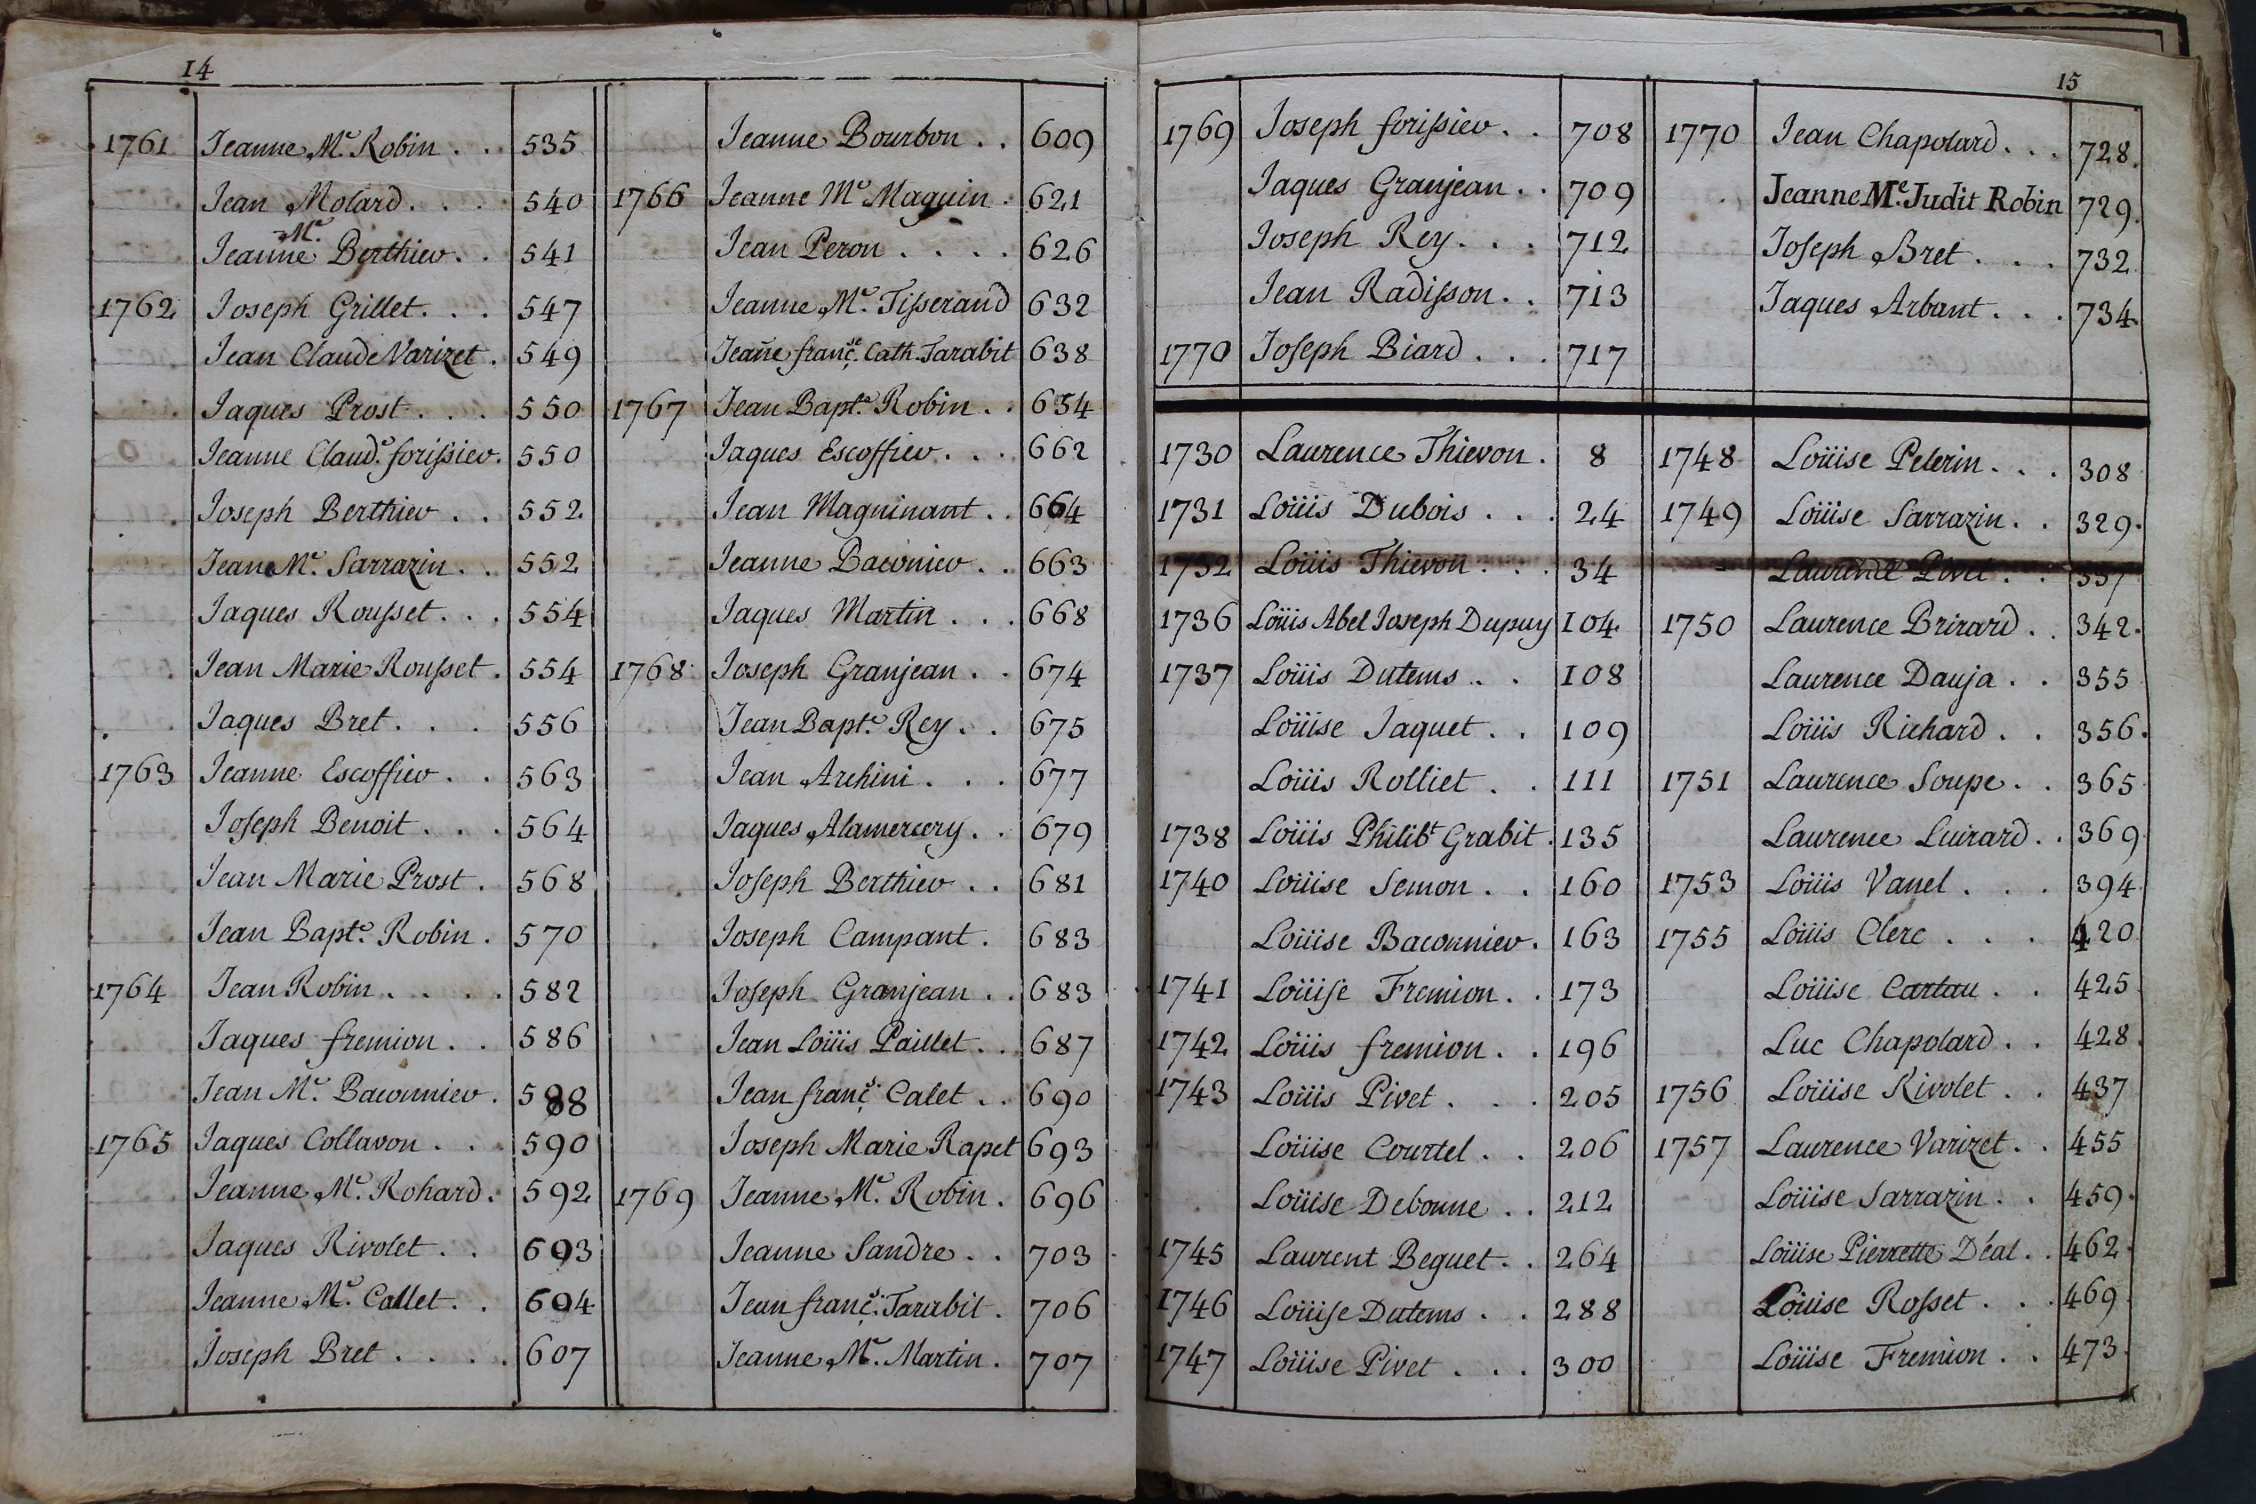 14
1761 Jeanne Me. Robin . . 535
Jean Molard . . . 540
Jeanne Me. Berthier . . 541
1762 Joseph Grillet . . . 547
Jean Claude Varizet . 549
Jaques Prost . . . 550
Jeanne Claude. forissier . 550
Joseph Berthier . . 552
Jeane Me. Sarrazin . . 552
Jaques Rousset . . . 554
Jean Marie Rousset . 554
Jaques Bret . . . 556
1763 Jeanne Escoffier . . 563
Joseph Benoit . . . 564
Jean Marie Prost . 568
Jean Bapte. Robin . 570
1764 Jean Robin . . . . 582
Jaques fremion . . 586
Jean Me. Baconnier . 588
1765 Jaques Collavon . . . 590
Jeanne Me. Rohard . 592
Jaques Rivolet . . 603
Jeanne Me. Callet . . 604
Joseph Bret . . . . 607
Jeanne Bourbon . . 609
1766 Jeanne Me Maguin . 621
Jean Peron . . . . 626
Jeanne Me. Tisserand 632
Jeañe franç.e Cath. Tarabit 638
1767 Jean Bapte. Robin . . 654
Jaques Escoffier . . . 662
Jean Maguinant . . 664
Jeanne Baconier . . 663
Jaques Martin . . . 668
1768 Joseph Granjean . . 674
Jean Bapte. Rey . . 675
Jean Archini . . . 677
Jaques Alamercery . . 679
Joseph Berthier . . 681
Joseph Campant . 683
Joseph Granjean . . 683
Jean Loüis Paillet . . 687
Jean franç.s Calet . . 690
Joseph Marie Rapet 693
1769 Jeanne Me. Robin . 696
Jeanne Sandre . . 703
Jean franç.s Tarabit . 706
Jeanne Me. Martin . 707
15
1769 Joseph forissier . . 708
Jaques Granjean . . 709
Joseph Rey . . . 712
Jean Radisson . . 713
1770 Joseph Biard . . . 717
1770 Jean Chapolard . . . 728.
Jeanne Me. Judit Robin 729.
Joseph Bret . . . 732
Jaques Arbant . . . 734.
1730 Laurence Thievon . 8
1731 Loüis Dubois . . . 24
1732 Loüis Thievon . . . 34
1736 Loüis Abel Joseph Dupuy 104.
1737 Loüis Dutems . . . 108
Loüise Jaquet . . 109
Loüis Rolliet . . 111
1738 Loüis Philibt Grabit . 135
1740 Loüise Semon . . 160
Loüise Baconnier . 163
1741 Loüise Fremion . . 173
1742 Loüis fremion . . 196
1743 Loüis Pivet . . . 205
Loüise Courtel . . 206
Loüise Debonne . . 212
1745 Laurent Beguet . . 264
1746 Loüise Dutems . . 288
1747 Loüise Pivet . . . 300
1748 Loüise Pelerin . . . 308
1749 Loüise Sarrazin . . 329.
Laurence Pivet . . 337
1750 Laurence Brirard . . 342.
Laurence Dauja . . 355
Loüis Richard . . 356.
1751 Laurence Soupe . . 365
Laurence Luirard . . 369
1753 Loüis Vanel . . . 394
1755 Loüis Clerc . . . 420
Loüise Cartau . . 425
Luc Chapolard . . 428.
1756 Loüise Rivolet . . 437
1757 Laurence Varizet . . 455
Loüise Sarrazin . . 459.
Loüise Pierrette Déal . . 462.
Loüise Rosset . . . 469.
Loüise Fremion . . 473.